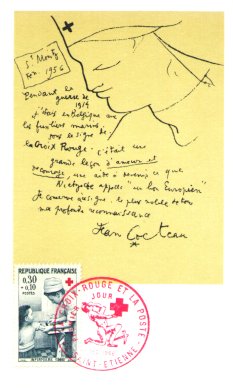 St Moritz
Fév. 1956
Pendant la
guerre de
1914
j'étais en Belgique avec
les fusiliers marins
sous le signe
de la Croix Rouge. C'était une
grande leçon d'amour et
une aide à devenir ce que
Nietzsche appelle "un bon Européen"
Je conserve au signe le plus noble de tous
ma profonde reconnaissance
Jean Cocteau
RÉPUBLIQUE FRANÇAISE
0,30
+0,10
POSTES
INFIRMIÈRE
CROIX-ROUGE ET LA POSTE
JOUR
SAINT-ETIENNE